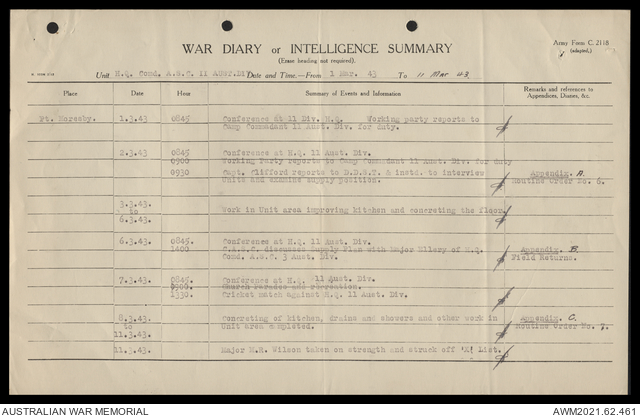 Army Form C. 2118
(adapted.)
WAR DIARY or INTELLIGENCE SUMMARY
(Erase heading not required).
Unit H.Q. Comd. A.S.C. 11 Aust.Div Date and Time.—From 1 Mar. 43 To 11 Mar 43.
Place Date Hour Summary of Events and Information Remarks and references to Appendices, Diaries, &c.
Pt. Moresby. 1.3.43 0845 Conference at 11 Div. H.Q. Working party reports to
Camp Commadant 11 Aust. Div. for duty.
2.3.43 0845 Conference at H.Q. 11 Aust. Div.
0900 Working Party reports to Camp Commandant 11 Aust. Div. for duty
0930 Capt. Clifford reports to D.D.S.T. & instd. to interview Appendix A.
Units and examine supply position. Routine Order No. 6.
3.3.43.
to Work in Unit area improving kitchen and concreting the floor.
6.3.43.
6.3.43 0845. Conference at H.Q. 11 Aust. Div.
1400 C.A.S.C. discusses Supply Plan with Major Ellery of H.Q. Appendix B.
Comd. A.S.C. 3 Aust. Div. Field Returns.
7.3.43 0845. Conference at H.Q. 11 Aust. Div.
0900. Church Parades and recreation.
1330. Cricket match against H.Q. 11 Aust. Div.
8.3.43. Concreting of kitchen, drains and showers and other work in Appendix C.
to Unit area completed. Routine Order No. 7.
11.3.43.
11.3.43. Major M.R. Wilson taken on strength and struck off 'X' List.
AUSTRALIAN WAR MEMORIAL
AWM2021.62.461